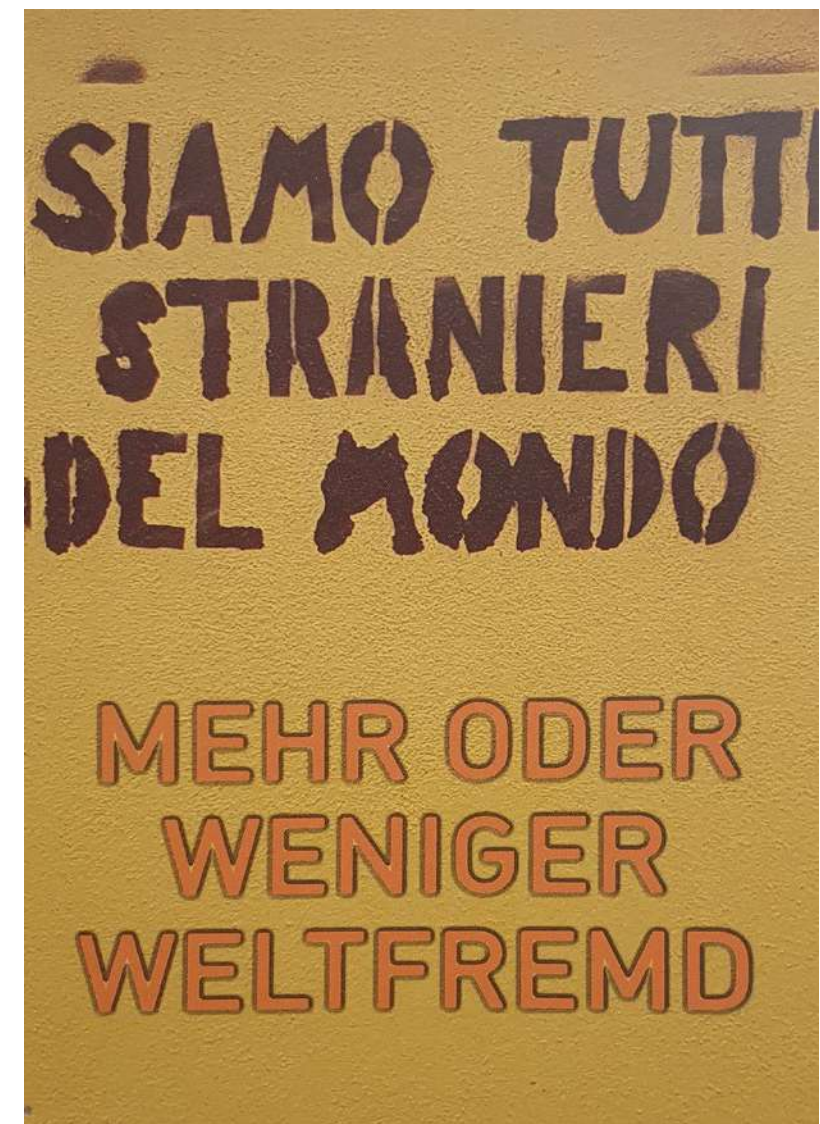 SIAMO TUTTI
STRANIERI
DEL MONDO
MEHR ODER
WENIGER
WELTFREMD